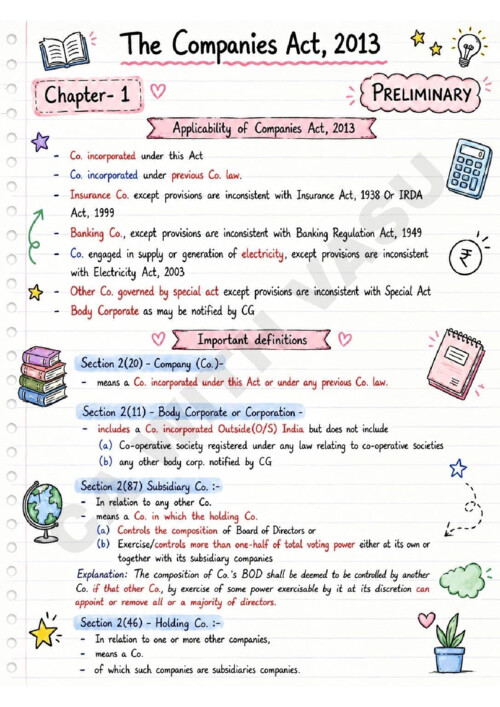 The Companies Act, 2013
Chapter- 1
PRELIMINARY
Applicability of Companies Act, 2013
- Co. incorporated under this Act
- Co. incorporated under previous Co. law.
- Insurance Co. except provisions are inconsistent with Insurance Act, 1938 Or IRDA
Act, 1999
- Banking Co., except provisions are inconsistent with Banking Regulation Act, 1949
- Co. engaged in supply or generation of electricity, except provisions are inconsistent
with Electricity Act, 2003
- Other Co. governed by special act except provisions are inconsistent with Special Act
- Body Corporate as may be notified by CG
₹
Important definitions
Section 2(20) - Company (Co.)-
- means a Co. incorporated under this Act or under any previous Co. law.
Section 2(11) - Body Corporate or Corporation -
- includes a Co. incorporated Outside(O/S) India but does not include
(a) Co-operative society registered under any law relating to co-operative societies
(b) any other body corp. notified by CG
Section 2(87) Subsidiary Co. :-
- In relation to any other Co.
- means a Co. in which the holding Co.
(a) Controls the composition of Board of Directors or
(b) Exercise/controls more than one-half of total voting power either at its own or
together with its subsidiary companies
Explanation: The composition of Co.'s BOD shall be deemed to be controlled by another
Co. if that other Co., by exercise of some power exercisable by it at its discretion can
appoint or remove all or a majority of directors.
Section 2(46) - Holding Co. :-
- In relation to one or more other companies,
- means a Co.
- of which such companies are subsidiaries companies.
CA WITH VASU